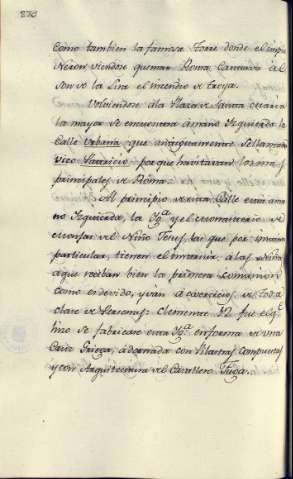 como tambien la famosa Torre donde el impio
Neron viendose quemar Roma cantaba al
son de la Lira el incendio de Troya.
Volviendose á la Plaza de Santa Maria
la mayor se encuentra á mano izquierda la
Calle Urbana que antiguamente se llamaba
Vico Patricio, porque havitavan los mas
principales de Roma.
Al principio de esta Calle está á ma
no izquierda, la Yg.ª y el
del Niño Jesus, las que por
particular, tienen el a las Niñas
que reciban bien la primera comunion
como es devido, y dan exercicios de toda
clase de Personas: Clemente 12 fue el q.e
hizo se fabricase esta Yg.ª en forma de una
Cruz Griega, adornada con Pilastras compuestas
y con Arquitectura del Cavallero Fuga.